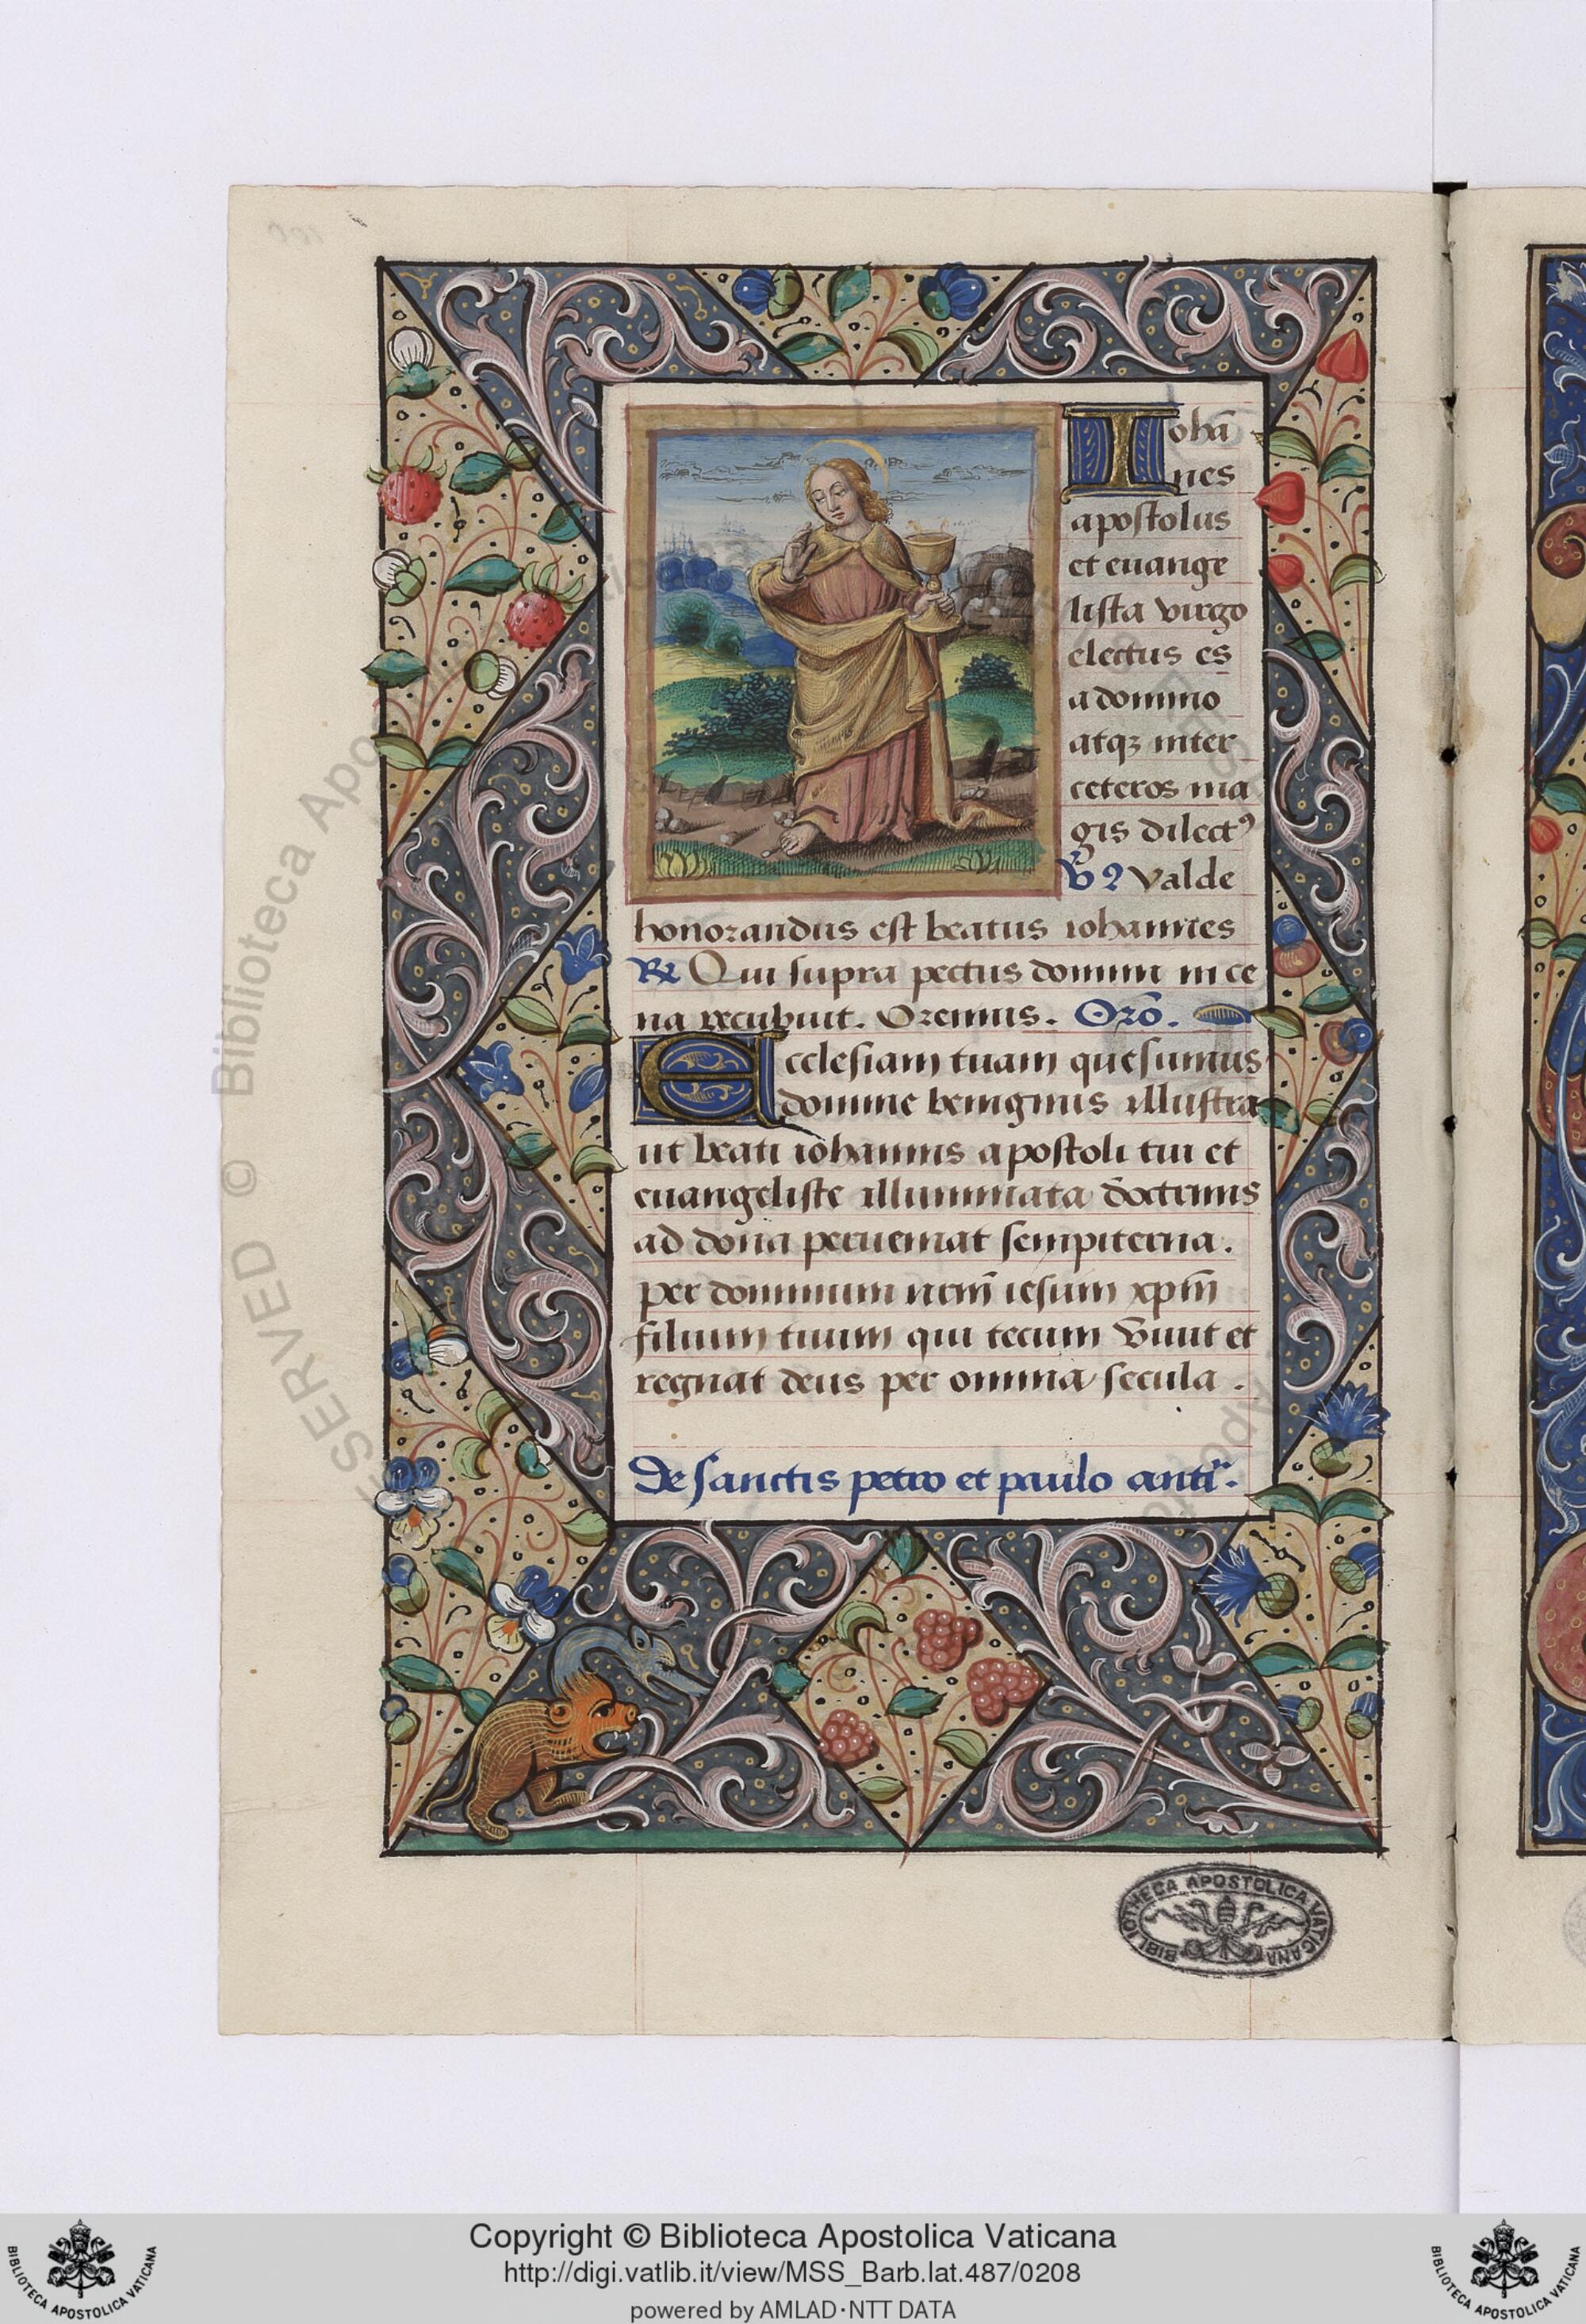 Iohã
nes
apostolus
et euange
lista virgo
electus es
a domino
atqꝫ inter
ceteros ma
gis dilectꝰ
℣ Valde
honorandus est beatus iohannes
℟ Qui supra pectus domini in ce
na recubuit. Oremus. Orõ.
Ecclesiam tuam quesumus
domine benignus illustra
ut beati iohannis apostoli tui et
euangeliste illuminata doctrinis
ad dona perueniat sempiterna.
per dominum nrm̃ iesum xpm̃
filium tuum qui tecum viuit et
regnat deus per omnia secula.
De sanctis petro et paulo antiᵃ.
BIBLIOTHECA APOSTOLICA VATICANA
RESERVED © Biblioteca Apostolica
Copyright © Biblioteca Apostolica Vaticana
http://digi.vatlib.it/view/MSS_Barb.lat.487/0208
powered by AMLAD·NTT DATA
BIBLIOTECA APOSTOLICA VATICANA
BIBLIOTECA APOSTOLICA VATICANA